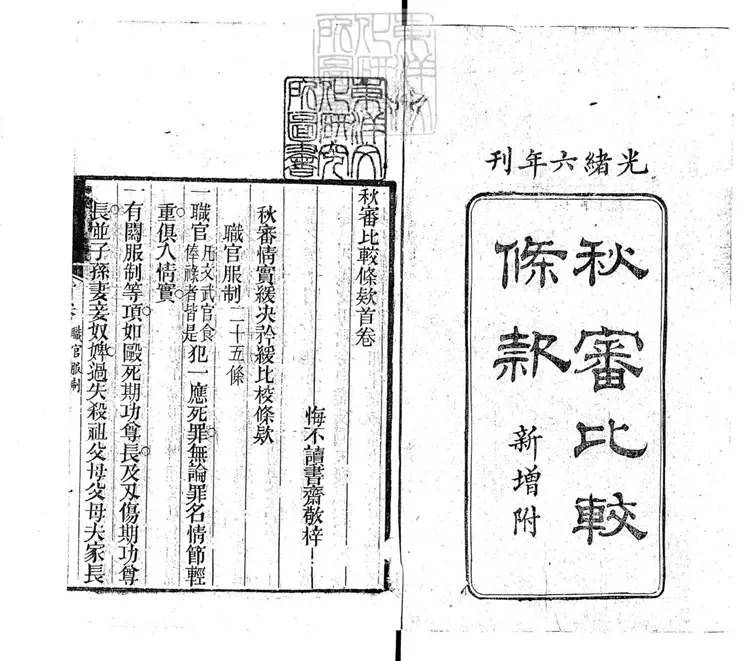 光緒六年刊
秋審比較
條款
新增附
東洋文
化研究
所圖書
秋審比較條欵首卷
悔不讀書齋敬梓
秋審情實緩决矜緩比校條欵
職官服制二十五條
一職官凡文武官食俸祿者皆是犯一應死罪無論罪名情節輕
重俱入情實
一有關服制等項如毆死期功尊長及刃傷期功尊
長並子孫妻妾奴婢過失殺祖父母父母夫家長
職官服制